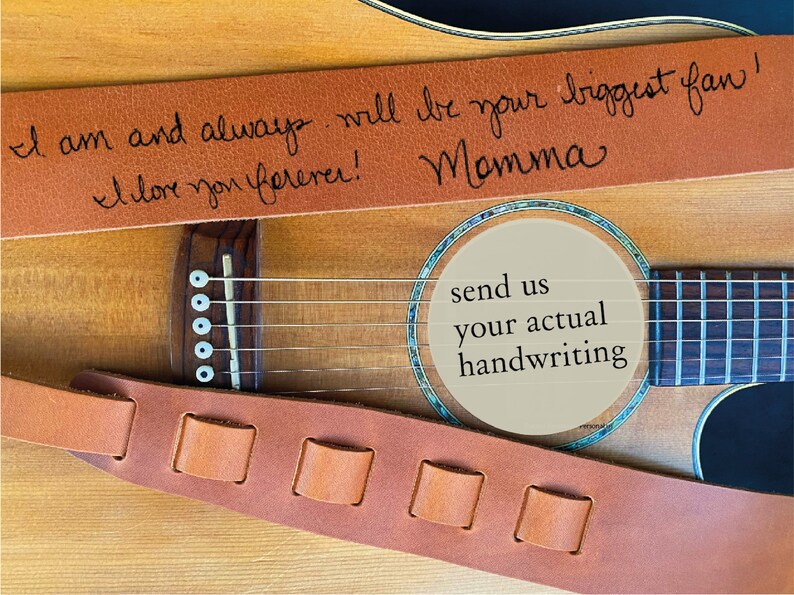 I am and always will be your biggest fan!
I love you forever! Momma
send us
your actual
handwriting